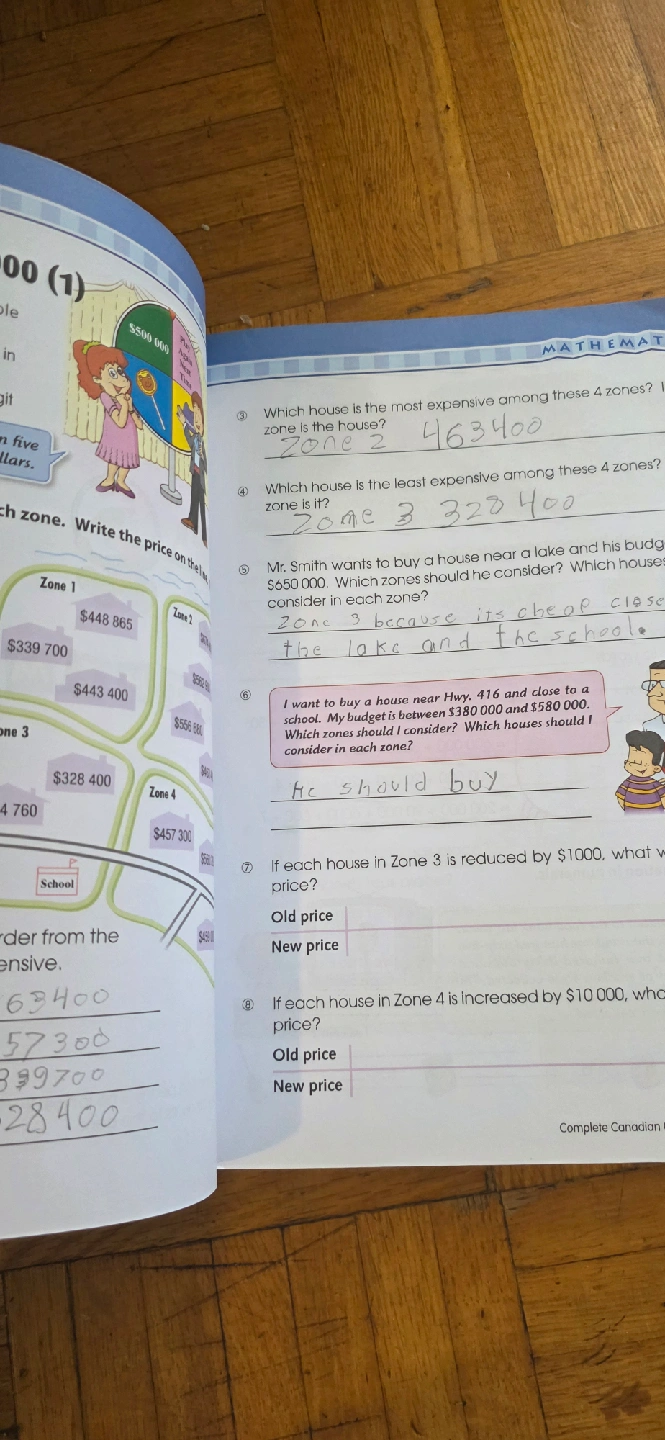 00 (1)
$500 000
in
git
n five
llars.
ch zone. Write the price on the
Zone 1
$448 865
$339 700
$443 400
Zone 2
$556 880
one 3
$328 400
4 760
Zone 4
$457 300
School
rder from the
ensive.
63400
57300
339700
28400
MATHEMAT
③ Which house is the most expensive among these 4 zones?
zone is the house?
Zone 2 463400
④ Which house is the least expensive among these 4 zones?
zone is it?
Zone 3 328400
⑤ Mr. Smith wants to buy a house near a lake and his budg
$650 000. Which zones should he consider? Which house
consider in each zone?
Zone 3 because its cheap close
the lake and the school.
⑥ I want to buy a house near Hwy. 416 and close to a
school. My budget is between $380 000 and $580 000.
Which zones should I consider? Which houses should I
consider in each zone?
he should buy
⑦ If each house in Zone 3 is reduced by $1000, what
price?
Old price
New price
⑧ If each house in Zone 4 is increased by $10 000, wha
price?
Old price
New price
Complete Canadian